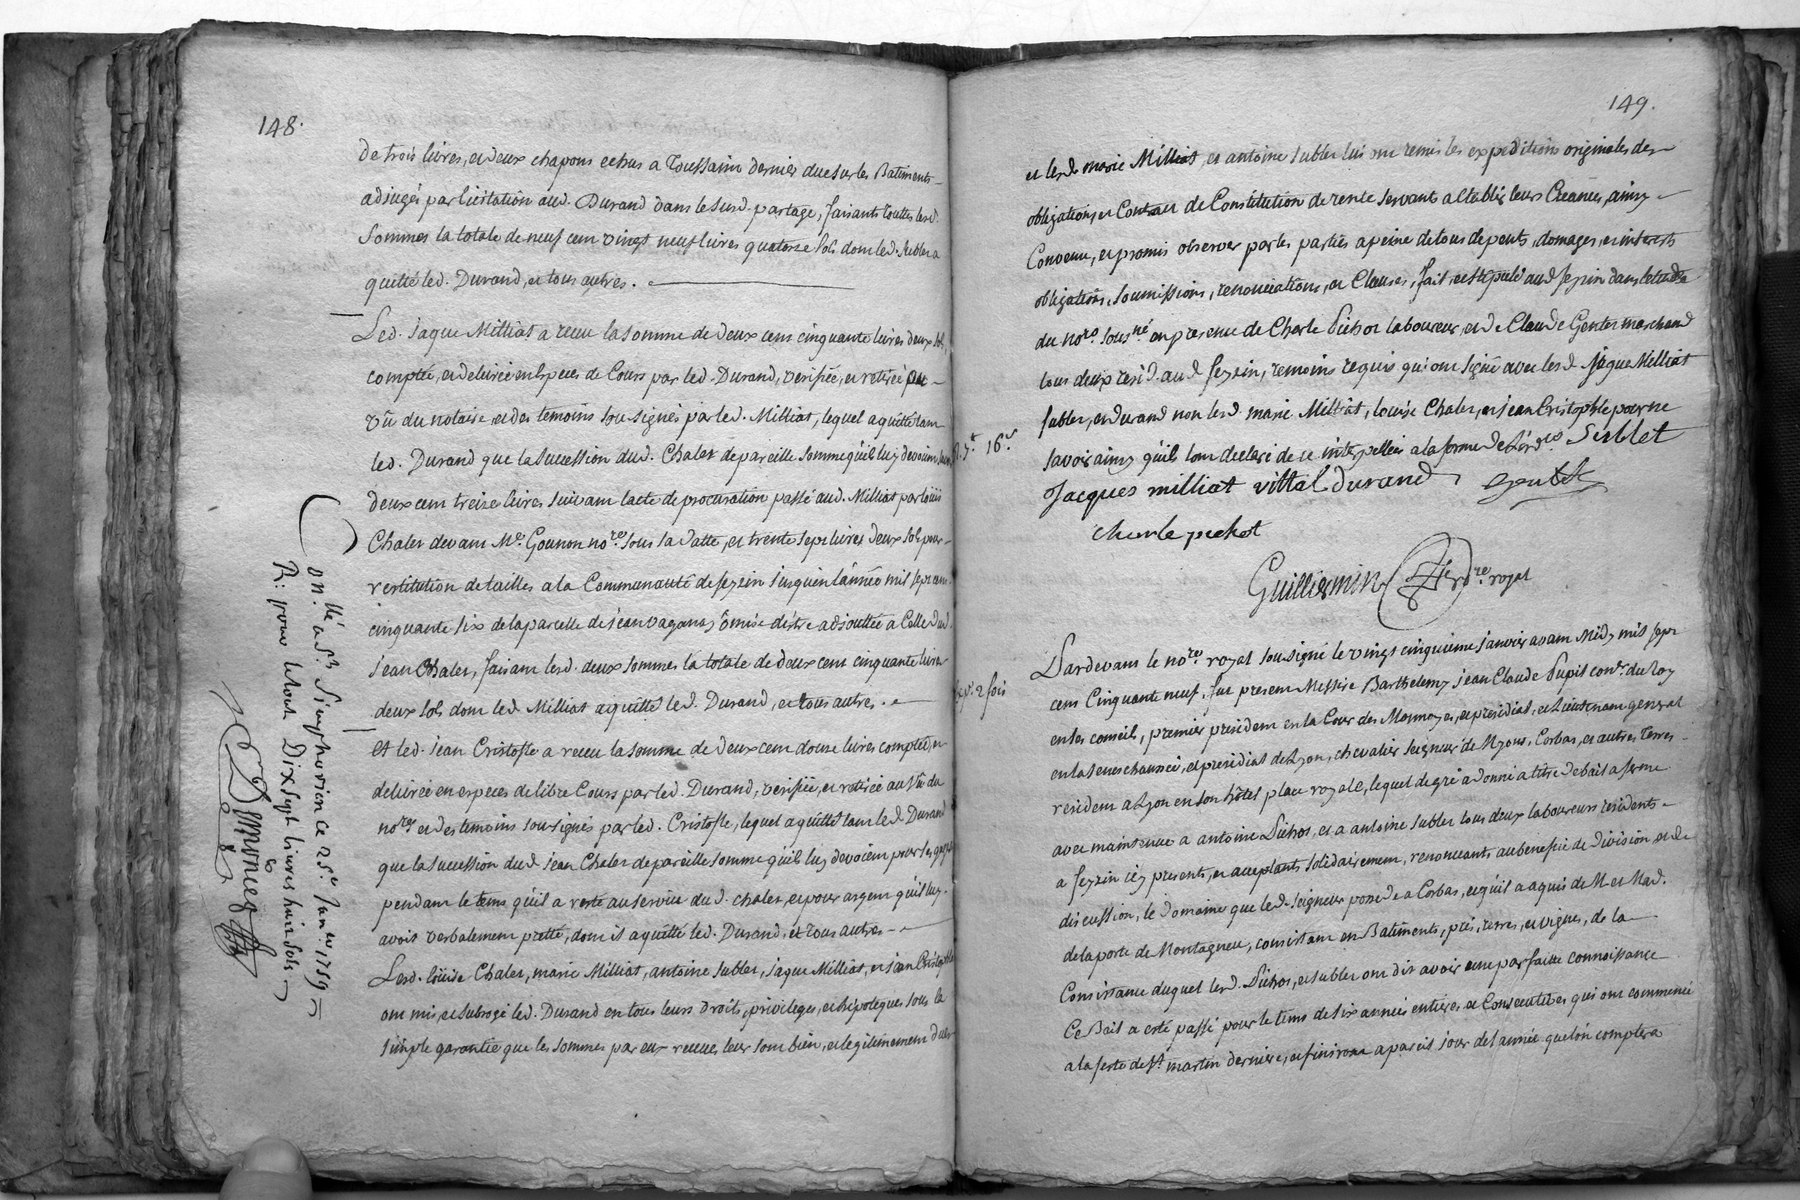 148.
de trois livres, et deux chapons echus a Toussaint dernier due sur les Batiments
adjugés par licitation aud. Durand dans le susd. partage, faisants touttes lesd.
sommes la totale de neuf cent vingt neuf livres quatorze sols dont led. Sublet a
quitté led. Durand, et tous autres.
Led. Jaque Milliat a receu la somme de deux cent cinquante livres deux sols,
comptée, et delivrée en Especes de Cours par led. Durand, verifiée, et retirée au
vû du notaire, et des temoins sousignés par led. Milliat, lequel a quitté tant
led. Durand que la succession dud. Chalet de pareille somme qu'ils luy devoient
deux cent treize livres suivant l'acte de procuration passé aud. Milliat par louis
Chalet devant Me. Gounon nore. sous sa datte, et trente sept livres deux sols pour
restitution de tailles a la Communauté de feyzin jusqu'en l'année mil sept cent
cinquante six de la parcelle de jean omise d'être adjouttée a Celle dud.
Jean Chalet, faisant lesd. deux sommes la totale de deux cent cinquante livres
deux sols dont led. Milliat a quitté led. Durand, et tous autres.
Et led. Jean Cristofle a receu la somme de deux cent douze livres comptée, et
delivrée en especes de libre Cours par led. Durand, verifiée, et retirée au vû du
nore. et des temoins sousignés par led. Cristofle, lequel a quitté tant led. Durand
que la succession dud. Jean Chalet de pareille somme qu'ils luy devoient pour ses gages
pendant le tems qu'il a resté au service dud. chalet, et pour argent qu'il luy
avoit verbalement pretté, dont il a quitté led. Durand, et tous autres
Lesd. louise Chalet, marie Milliat, antoine Sublet, Jaque Milliat, et jean Cristophle
ont mis, et subrogé led. Durand en tous leurs droits, privileges, et hipoteques sous la
simple garantie que les sommes par eux receues leur sont bien, et legitimement dues
onllé a St. Simphorien ce 25e Janvr. 1759
R: pour le tout Dix sept livres huit sols
149.
et lesd. marie Milliat, et antoine Sublet lui ont remis les expeditions originales des
obligations, et Contrat de Constitution de rente servant a l'etablir leurs Creances, ainsy
Convenu, et promis observer par les parties a peine de tous depents, domages, et interests
obligations, soumissions, renonciations, et Clauses, fait, et stipulé aud. feyzin dans l'etude
du nore. sousné. en presence de Charle Pichot laboureur, et de Claude Gentet marchand
tous deux resid. aud. feyzin, temoins requis qui ont signé avec lesd. Jaque Milliat
Sublet, et durand non lesd. marie Milliat, louise Chalet, et jean Cristophle pour ne
savoir ainsy qu'ils l'ont declaré de ce interpellés a la forme de l'ordce.
Sublet
Jacques milliat vittal durand gentet
charle pichot
Guilliermin nore. royal
2 fois
Pardevant le nore. royal sousigné le vingt cinquieme janvier avant Midy mil sept
cent Cinquante neuf, fut present Messire Barthelemy jean Claude Pupil coner. du Roy
en ses conseils, premier president en la Cour des Monnoyes, et presidial, et Lieutenant general
en la seneschaussée, et presidial de Lyon, chevalier seigneur de Myons, Corbas, et autres terres
resident a Lyon en son hôtel place royale, lequel de gré a donné a titre de bail a ferme
avec maintenue a antoine Pichot, et a antoine Sublet tous deux laboureurs residents
a feyzin icy presents, et acceptants solidairement, renoncants au benefice de division, et de
discussion, le domaine que led. seigneur possede a Corbas, et qu'il a aquis de M. et Mad.
de la porte de Montagneu, consistant en Batiments, prés, terres, et vignes, de la
Consistance duquel lesd. Pichot, et Sublet ont dit avoir eu parfaitte connoissance
Ce Bail a esté passé pour le tems de six années entieres, et Consecutives qui ont commencé
a la feste de St. martin derniere, et finiront a pareil jour de l'année que l'on comptera